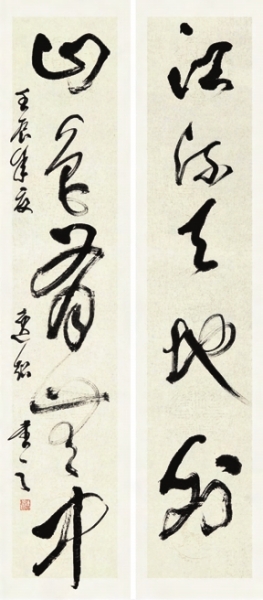 江流天地外
山色有無中
壬辰年夏
書之